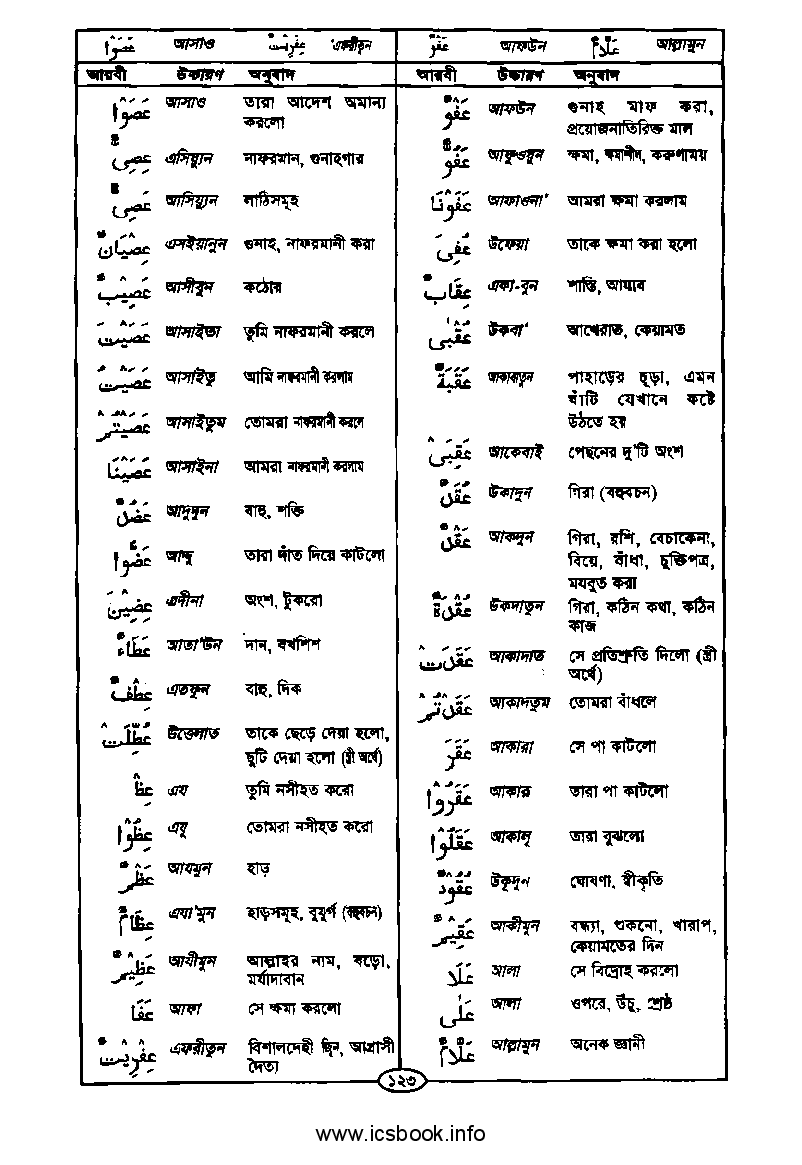 عَصَوْا আসাও عِفْرِيْتٌ এফরীতুন
আরবী উচ্চারণ অনুবাদ
عَصَوْا আসাও তারা আদেশ অমান্য
করলো
عِصِيٌّ এসিয়্যুন নাফরমান, গুনাহগার
عَصِيٌّ আসিয়্যুন লাঠিসমূহ
عِصْيَانٌ এসইয়ানুন গুনাহ, নাফরমানী করা
عَصِيْبٌ আসীবুন কঠোর
عَصَيْتَ আসাইতা তুমি নাফরমানী করলে
عَصَيْتُ আসাইতু আমি নাফরমানী করলাম
عَصَيْتُمْ আসাইতুম তোমরা নাফরমানী করলে
عَصَيْنَا আসাইনা আমরা নাফরমানী করলাম
عَضُدٌ আদুদুন বাহু, শক্তি
عَضُّوْا আদ্দু তারা দাঁত দিয়ে কাটলো
عِضِيْنَ এদীনা অংশ, টুকরো
عَطَاءٌ আতা'উন দান, বখশিশ
عِطْفٌ এতফুন বাহু, দিক
عُطِّلَتْ উত্তেলাত তাকে ছেড়ে দেয়া হলো,
ছুটি দেয়া হলো (স্ত্রী অর্থে)
عِظْ এয তুমি নসীহত করো
عِظُوْا এযূ তোমরা নসীহত করো
عَظْمٌ আযমুন হাড়
عِظَامٌ এযা'মুন হাড়সমূহ, বুযুর্গ (বহুবচন)
عَظِيْمٌ আযীমুন আল্লাহর নাম, বড়ো,
মর্যাদাবান
عَفَا আফা সে ক্ষমা করলো
عِفْرِيْتٌ এফরীতুন বিশালদেহী জ্বিন, আগ্রাসী
দৈত্য
عَفْوٌ আফউন عَلَّامٌ আল্লামুন
আরবী উচ্চারণ অনুবাদ
عَفْوٌ আফউন গুনাহ মাফ করা,
প্রয়োজনাতিরিক্ত মাল
عَفُوٌّ আফুওয়ুন ক্ষমা, ক্ষমাশীল, করুণাময়
عَفَوْنَا আফাওনা' আমরা ক্ষমা করলাম
عُفِىَ উফেয়া তাকে ক্ষমা করা হলো
عِقَابٌ একা-বুন শাস্তি, আযাব
عُقْبٰى উকবা' আখেরাত, কেয়ামত
عَقَبَةٌ আকাবাতুন পাহাড়ের চূড়া, এমন
ঘাঁটি যেখানে কষ্টে
উঠতে হয়
عَقِبَىْ আকেবাই পেছনের দু'টি অংশ
عُقَدٌ উকাদুন গিরা (বহুবচন)
عَقْدٌ আকদুন গিরা, রশি, বেচাকেনা,
বিয়ে, বাঁধা, চুক্তিপত্র,
মযবুত করা
عُقْدَةٌ উকদাতুন গিরা, কঠিন কথা, কঠিন
কাজ
عَقَدَتْ আকাদাত সে প্রতিশ্রুতি দিলো (স্ত্রী
অর্থে)
عَقَدْتُّمْ আকাদতুম তোমরা বাঁধলে
عَقَرَ আকারা সে পা কাটলো
عَقَرُوْا আকার তারা পা কাটলো
عَقَلُوْا আকালূ তারা বুঝলো
عُقُوْدٌ উকূদুন ঘোষণা, স্বীকৃতি
عَقِيْمٌ আকীমুন বন্ধ্যা, শুকনো, খারাপ,
কেয়ামতের দিন
عَلَا আলা সে বিদ্রোহ করলো
عَلٰى আলা ওপরে, উঁচু, শ্রেষ্ঠ
عَلَّامٌ আল্লামুন অনেক জ্ঞানী
১২৩
www.icsbook.info